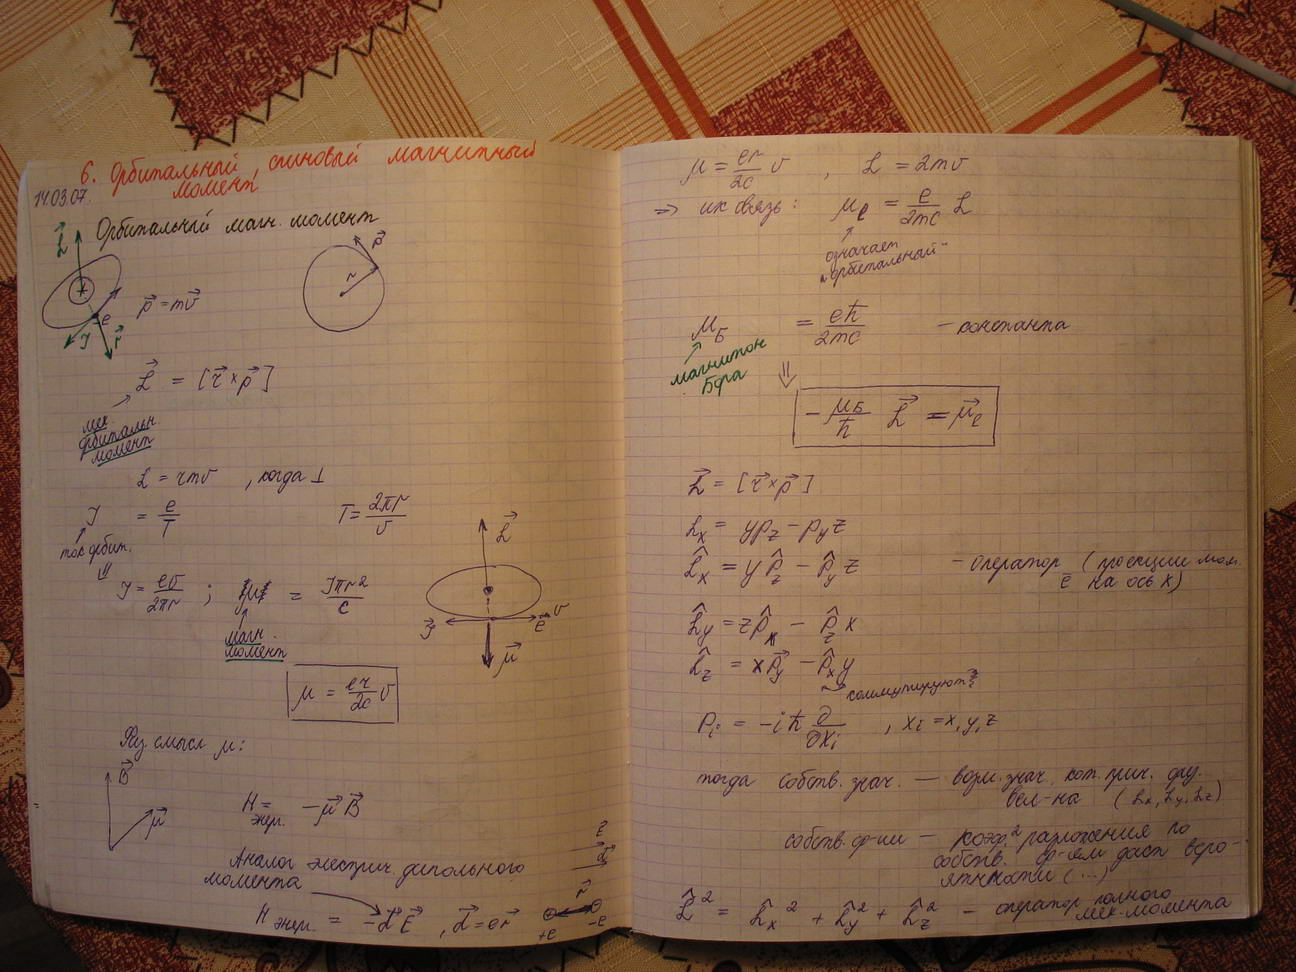 6. Орбитальный, спиновый магнитный
момент
14.03.07.
Орбитальный магн. момент
L⃗
p⃗ = mv⃗
e
J
r⃗
p⃗
r
L⃗ = [r⃗ × p⃗]
мех
орбитальн
момент
L = rmv , когда ⊥
J = e/T
T = 2πr/v
ток орбит.
⇓
J = ev/2πr ; μ = Jπr²/c
магн.
момент
L⃗
J⃗
e⃗
v
μ⃗
μ = er/2c v
Физ. смысл μ:
B⃗
μ⃗
H = −μ⃗ B⃗
энер.
Аналог электрич. дипольного
момента
H энер. = −d⃗ E⃗ , d⃗ = er⃗
E⃗
d⃗
r⃗
+e
−e
μ = er/2c v , L = rmv
⇒ их связь: μe = e/2mc L
означает
"орбитальный"
μБ = eħ/2mc − константа
магнитон
Бора
⇓
−μБ/ħ L⃗ = μ⃗e
L⃗ = [r⃗ × p⃗]
Lx = ypz − pyz
L̂x = yp̂z − p̂yz − оператор (проекции мом.
ē на ось x)
L̂y = zp̂x − p̂zx
L̂z = xp̂y − p̂xy
→ коммутируют
Pi = −iħ ∂/∂xi , xi = x, y, z
тогда собств. знач. — возм. знач., кот. прин. физ.
вел-на (Lx, Ly, Lz)
собств. ф-ии — коэф.² разложения по
собств. ф-ям даст веро-
ятности (...)
L̂² = L̂x² + L̂y² + L̂z² − оператор полного
мех. момента